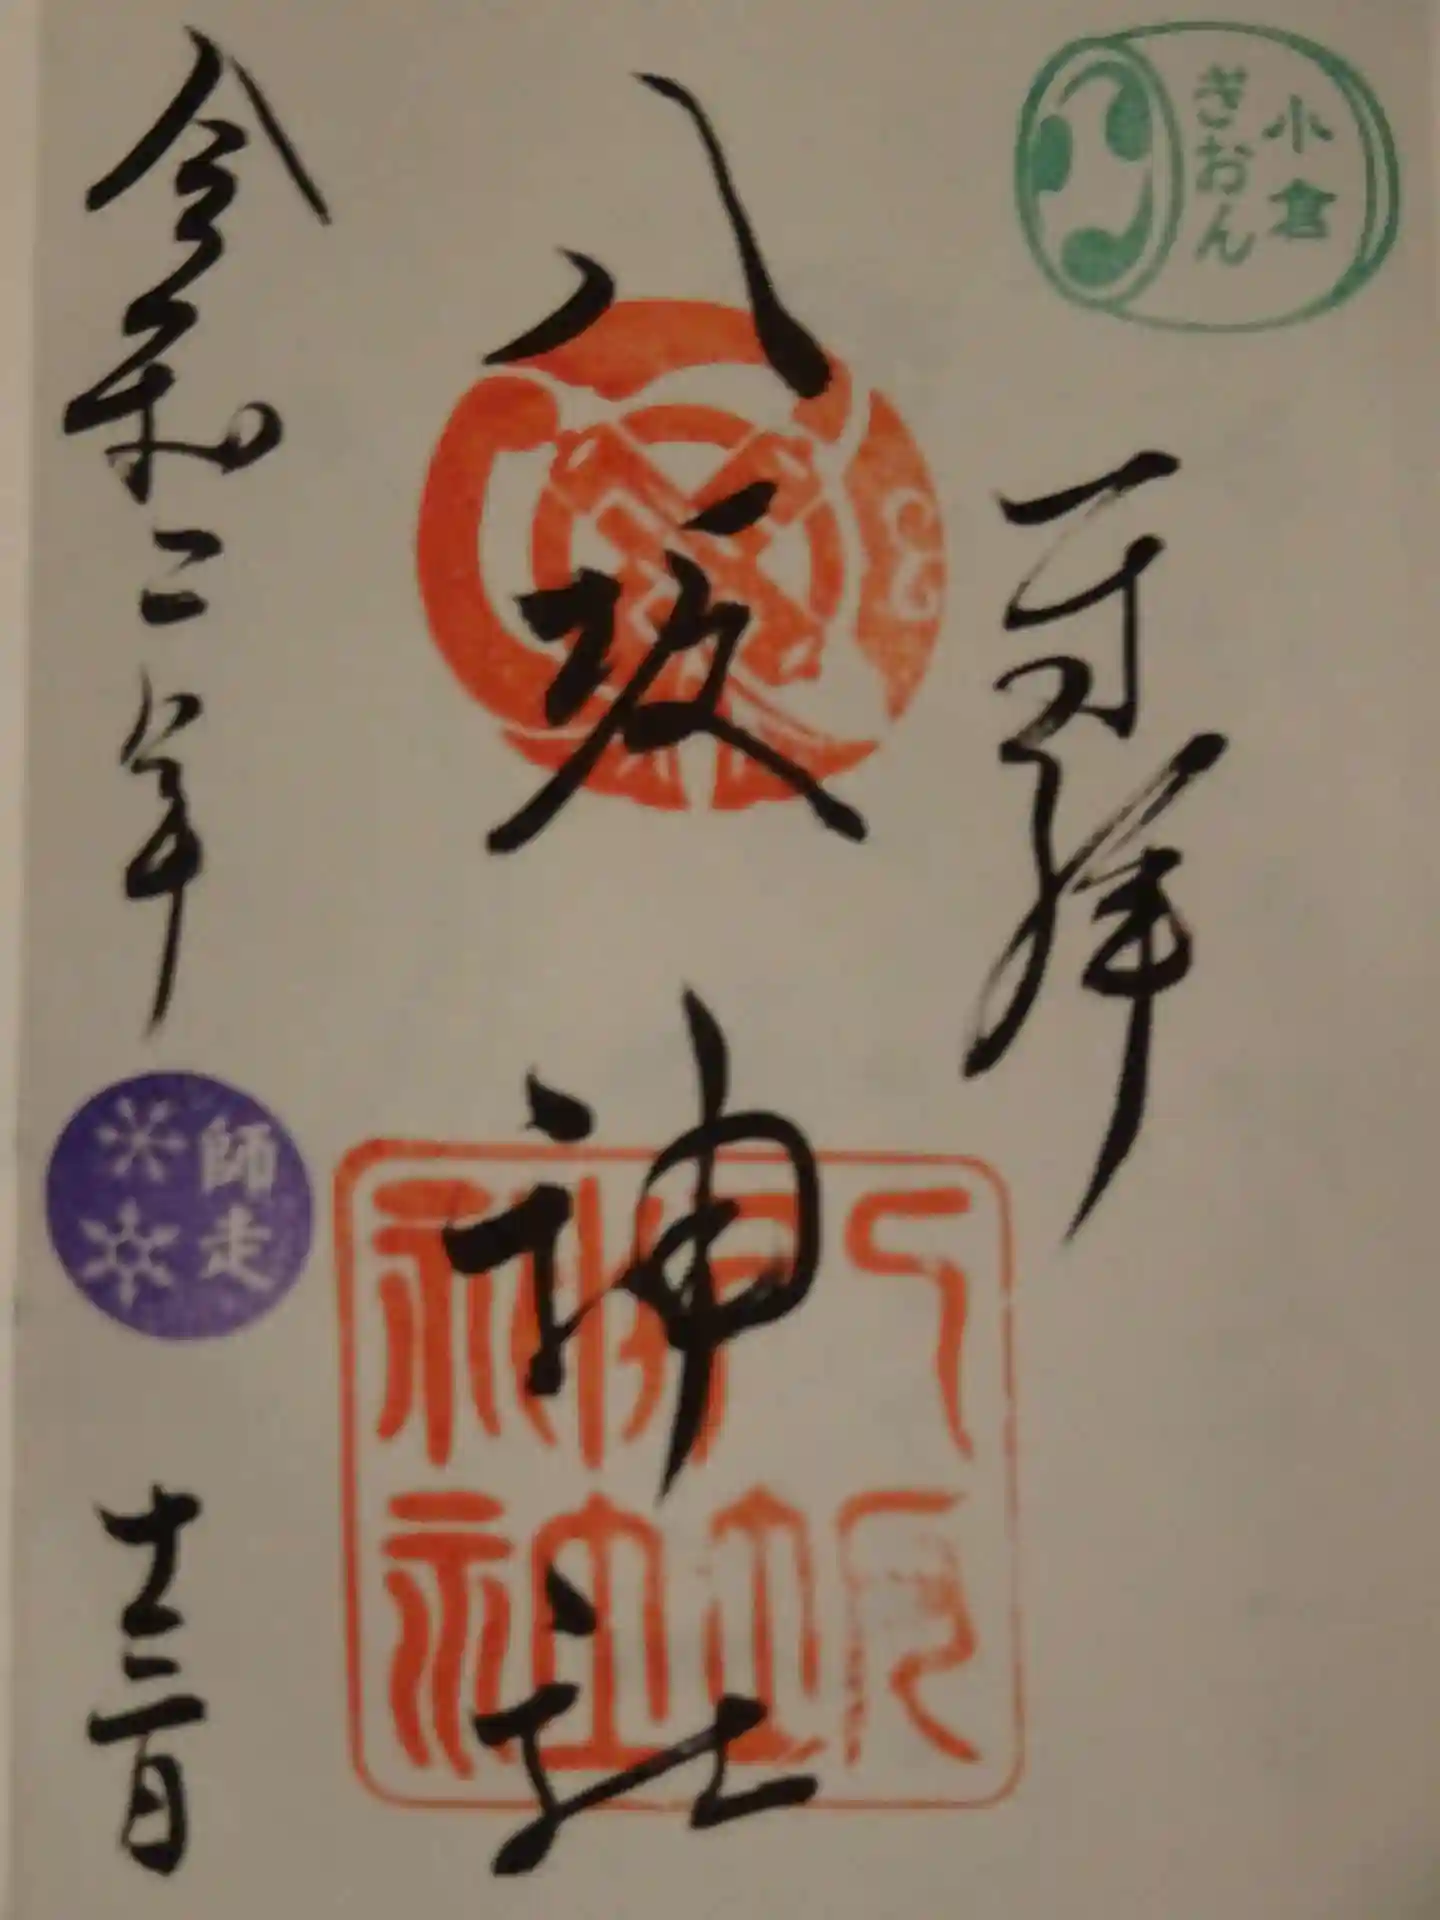 小倉
ぎおん
奉拝
八坂神社
八坂
神社
令和二年
師走
十二日